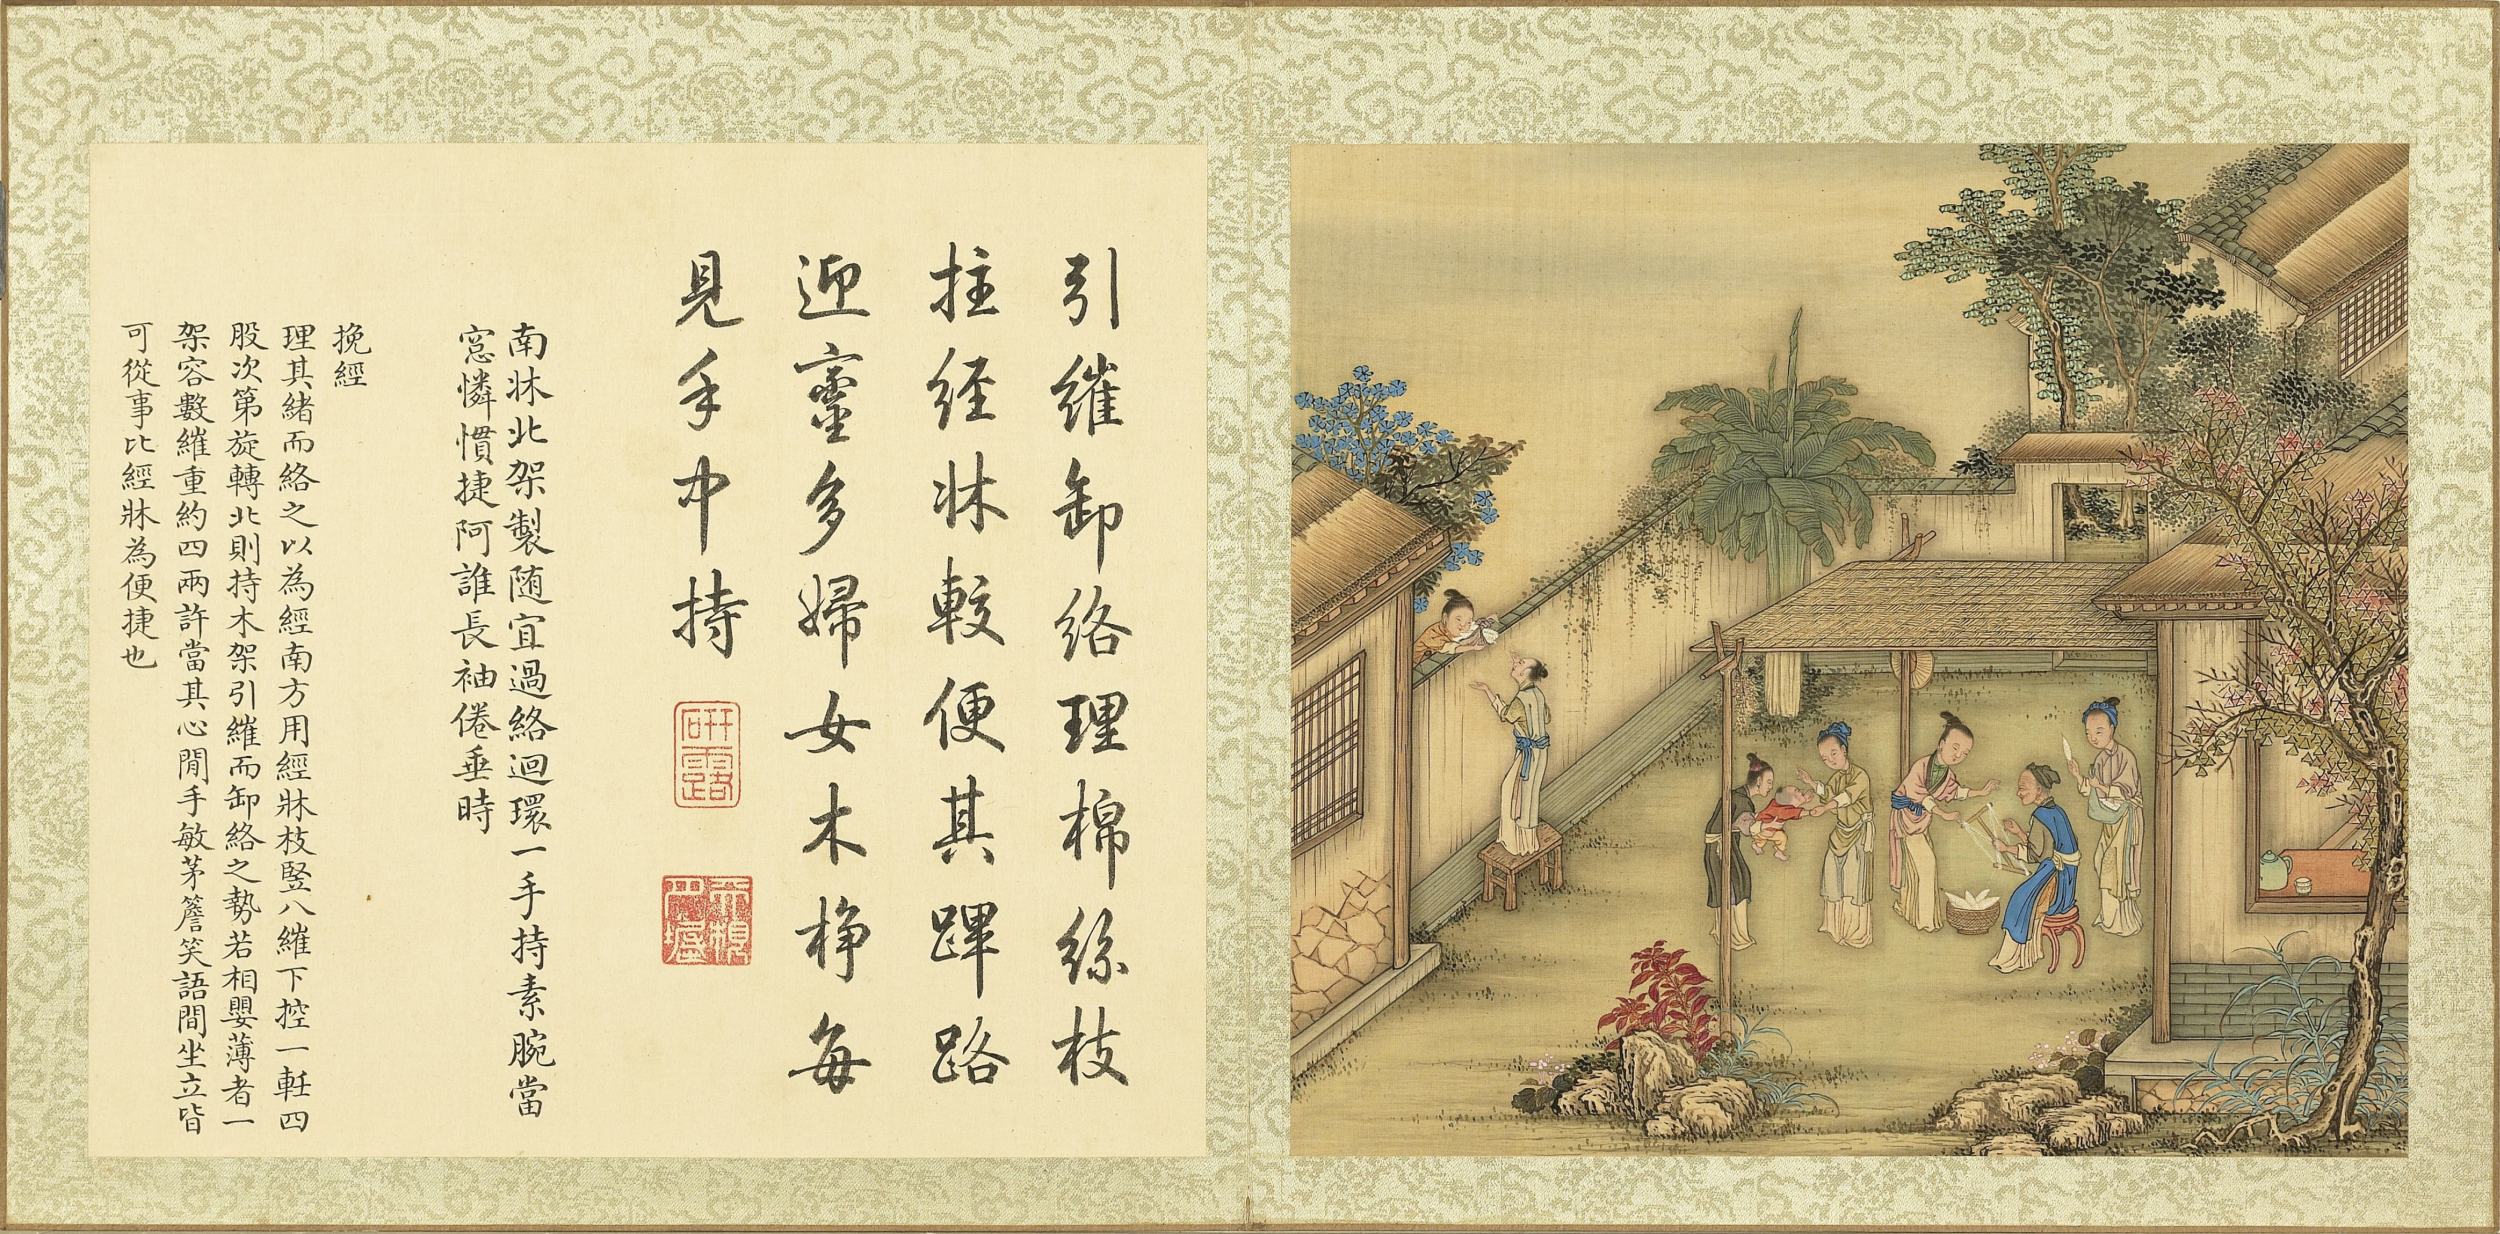 引維卸絡理棉絲枝
拄經牀較便其蹕路
迎鑾多婦女木桻每
見手中持
研露
南牀北架製隨宜過絡迴環一手持素腕當
窓憐慣捷阿誰長袖倦垂時
挽經
理其緒而絡之以為經南方用經牀枝竪八維下控一軖四
股次第旋轉北則持木架引維而卸絡之勢若相嬰薄者一
架容數維重約四兩許當其心閒手敏茅簷笑語間坐立皆
可從事比經牀為便捷也